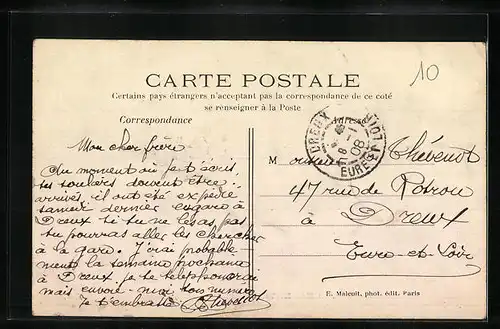 10
CARTE POSTALE
Certains pays étrangers n'acceptant pas la correspondance de ce coté
se renseigner à la Poste
Correspondance
Adresse
DREUX
08
EURE & LOIR
Mon cher frère
Au moment où je t'écris
tes souliers doivent être
arrivés, il ont été expédié
samedi dernier en gare à
Dreux si tu ne les as pas
tu pourras aller les chercher
à la gare. J'irai probable-
ment la semaine prochaine
à Dreux je te telephonerai
mais envoie-moi ton numero
Je t'embrasse Thévenot
Monsieur Thévenot
47 rue de Rotrou
à Dreux
Eure-et-Loir
E. Malcuit, phot. édit. Paris